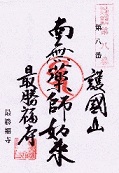 第八番
護國山
南無薬師如来
最勝福寺
最勝福寺